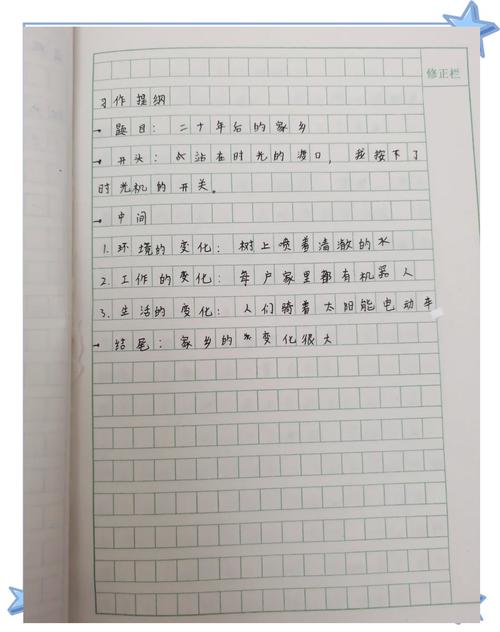 修正栏
习作提纲
- 题目：二十年后的家乡
- 开头：我站在时光的渡口，我按下了
时光机的开关。
- 中间
1.环境的变化：树上喷着清澈的水
2.工作的变化：每户家里都有机器人
3.生活的变化：人们骑着太阳能电动车
- 结尾：家乡的变化很大